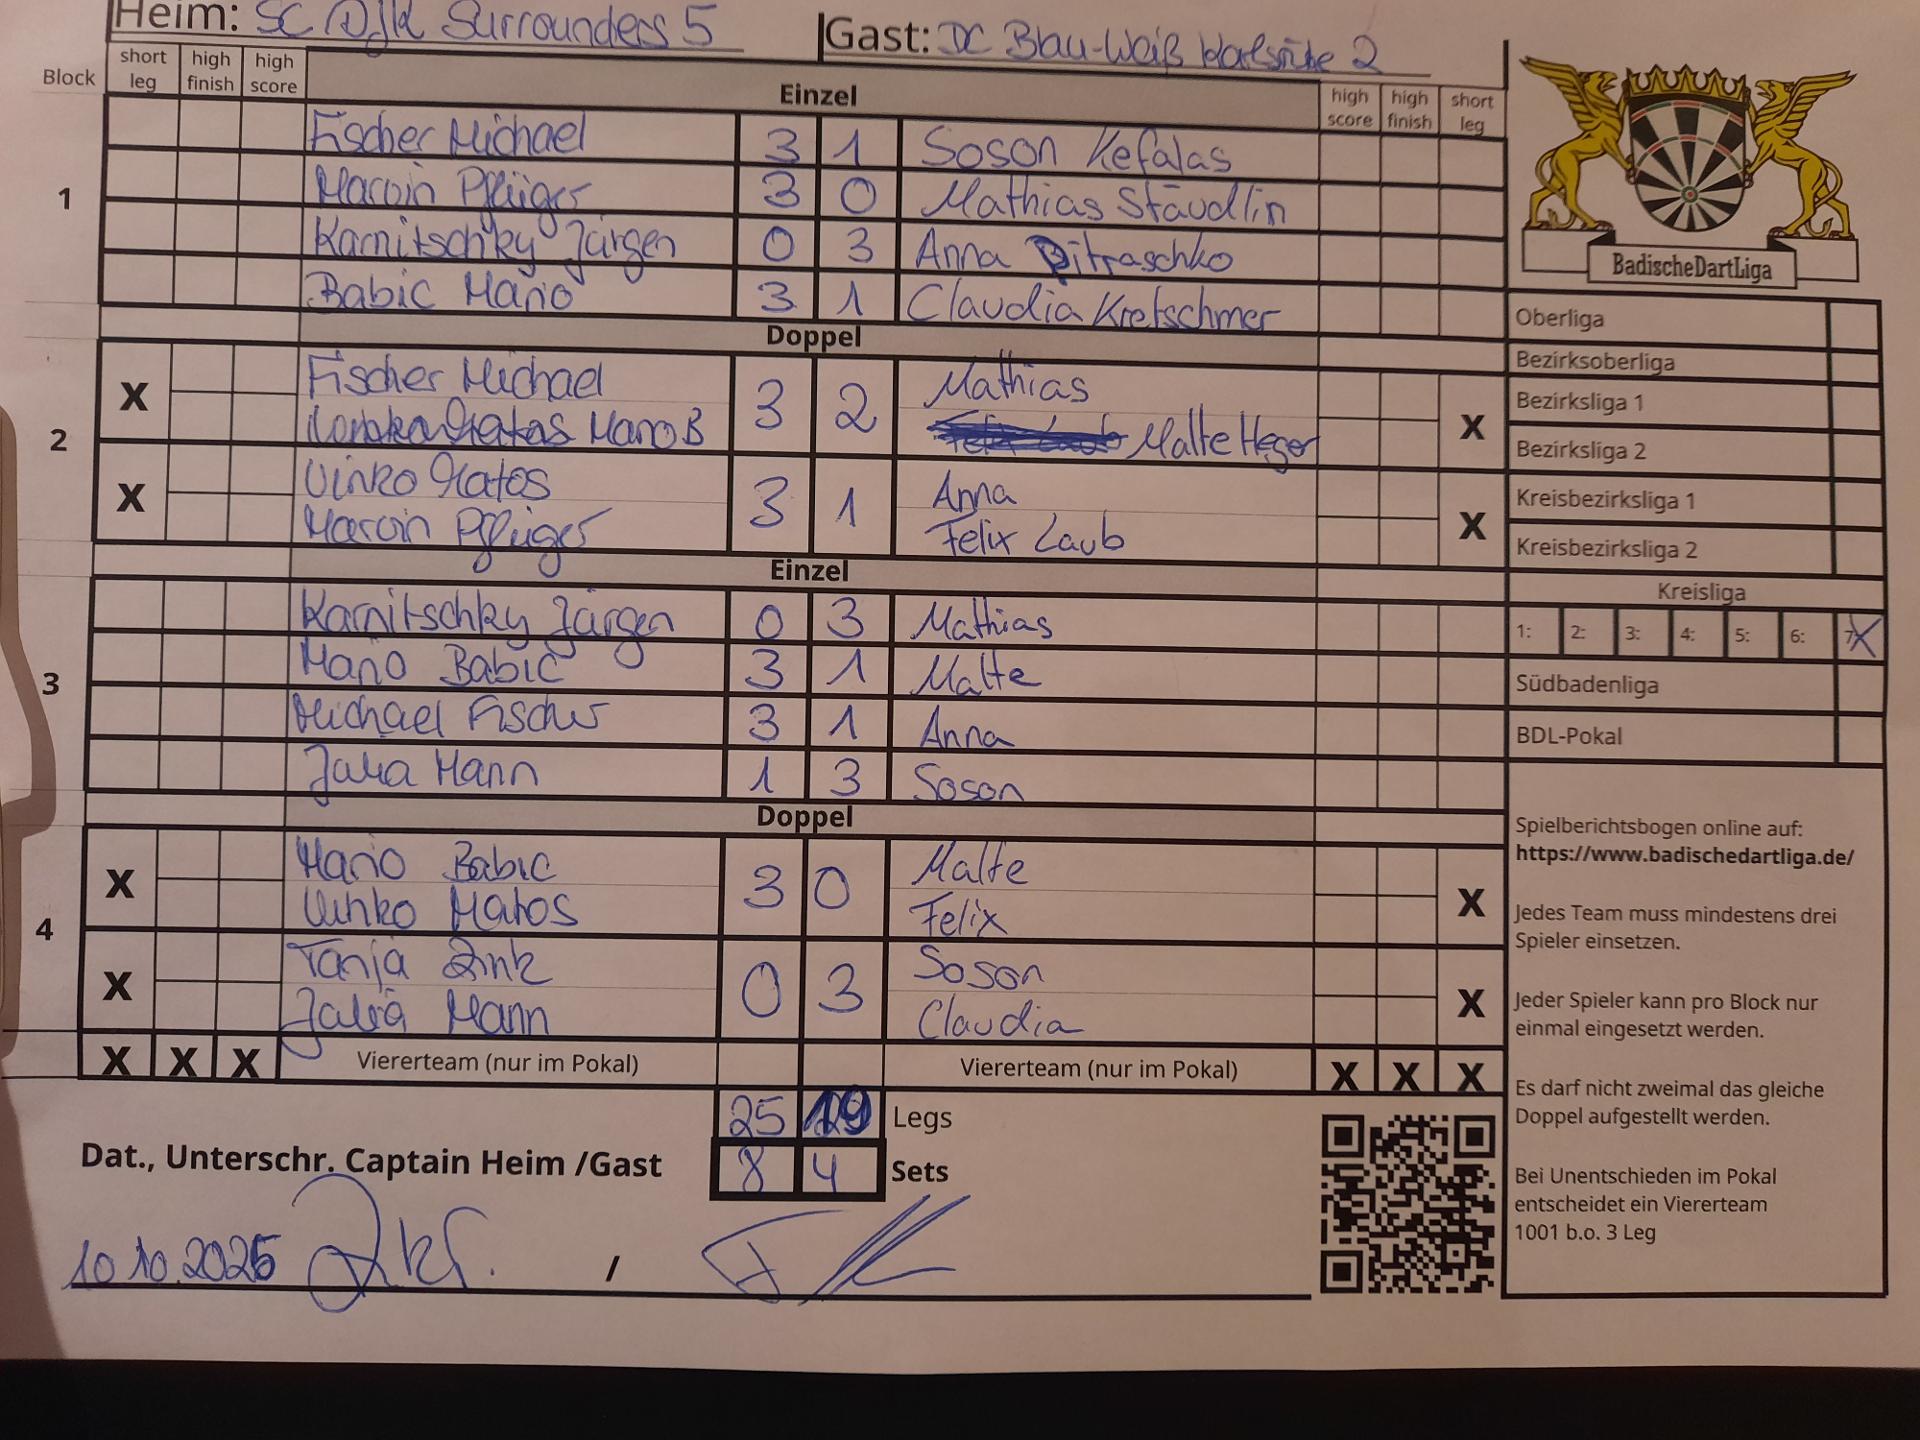 Heim: SC DJK Surrounders 5 Gast: DC Blau-Weiß Karlsruhe 2
Block short leg high finish high score Einzel high score high finish short leg
1
Fischer Michael 3 1 Soson Kefalas
Marvin Pflüger 3 0 Mathias Stäudlin
Karnitschky Jürgen 0 3 Anna Pitraschko
Babic Mario 3 1 Claudia Kretschmer
Doppel
2
X Fischer Michael 3 2 Mathias X
Mario B Malte Heger
X Vinko Matos 3 1 Anna X
Marvin Pflüger Felix Laub
Einzel
3
Karnitschky Jürgen 0 3 Mathias
Mario Babic 3 1 Malte
Michael Fischer 3 1 Anna
Julia Mann 1 3 Soson
Doppel
4
X Mario Babic 3 0 Malte X
Vinko Matos Felix
X Tanja Zink 0 3 Soson X
Julia Mann Claudia
X X X Viererteam (nur im Pokal) Viererteam (nur im Pokal) X X X
25 19 Legs
Dat., Unterschr. Captain Heim /Gast 8 4 Sets
10.10.2025 /
BadischeDartLiga
Oberliga
Bezirksoberliga
Bezirksliga 1
Bezirksliga 2
Kreisbezirksliga 1
Kreisbezirksliga 2
Kreisliga
1: 2: 3: 4: 5: 6: 7: X
Südbadenliga
BDL-Pokal
Spielberichtsbogen online auf:
https://www.badischedartliga.de/
Jedes Team muss mindestens drei
Spieler einsetzen.
Jeder Spieler kann pro Block nur
einmal eingesetzt werden.
Es darf nicht zweimal das gleiche
Doppel aufgestellt werden.
Bei Unentschieden im Pokal
entscheidet ein Viererteam
1001 b.o. 3 Leg